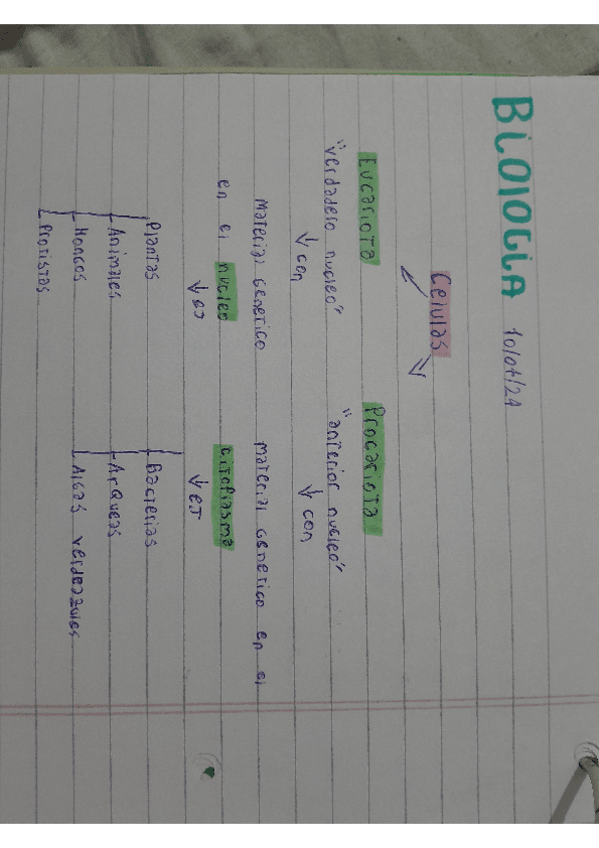 BIOLOGIA 10/04/24
Celulas
Eucariota
"verdadero nucleo"
↓ con
Material Genetico
en el nucleo
↓ ej
Plantas
Animales
Hongos
Protistas
Procariota
"anterior nucleo"
↓ con
material Genetico en el
citoplasma
↓ ej
Bacterias
Arqueas
Algas verdeazules